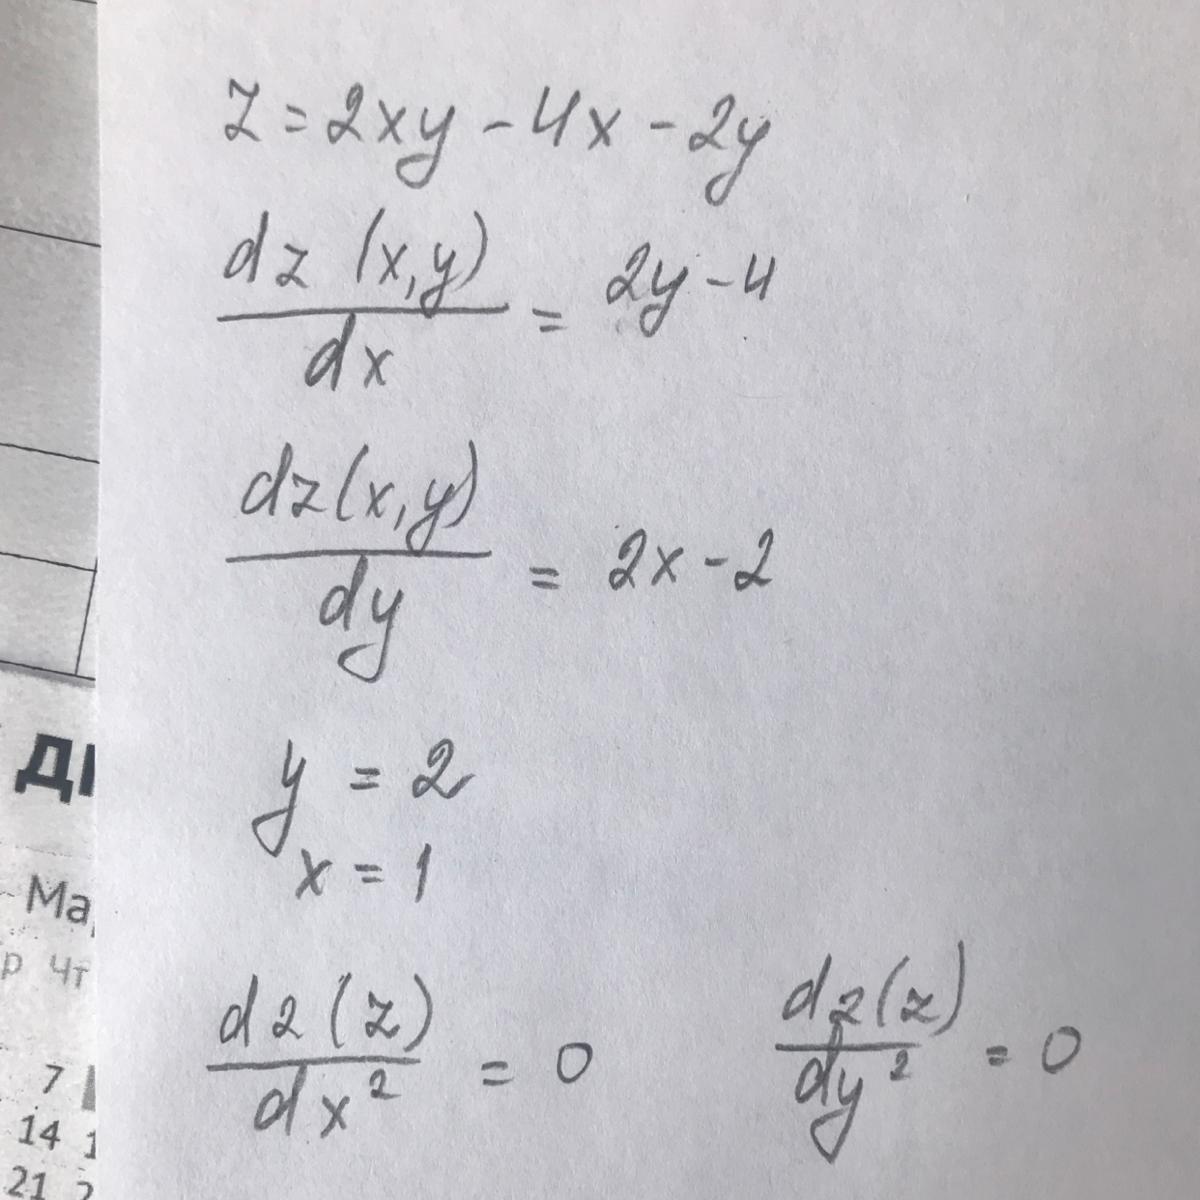 z = 2xy - 4x - 2y
dz (x,y)
dx
= 2y - 4
dz(x,y)
dy
= 2x - 2
y = 2
x = 1
d2(z)
dx²
= 0
d2(z)
dy²
= 0
Ма
Чт
7
14 1
21 2